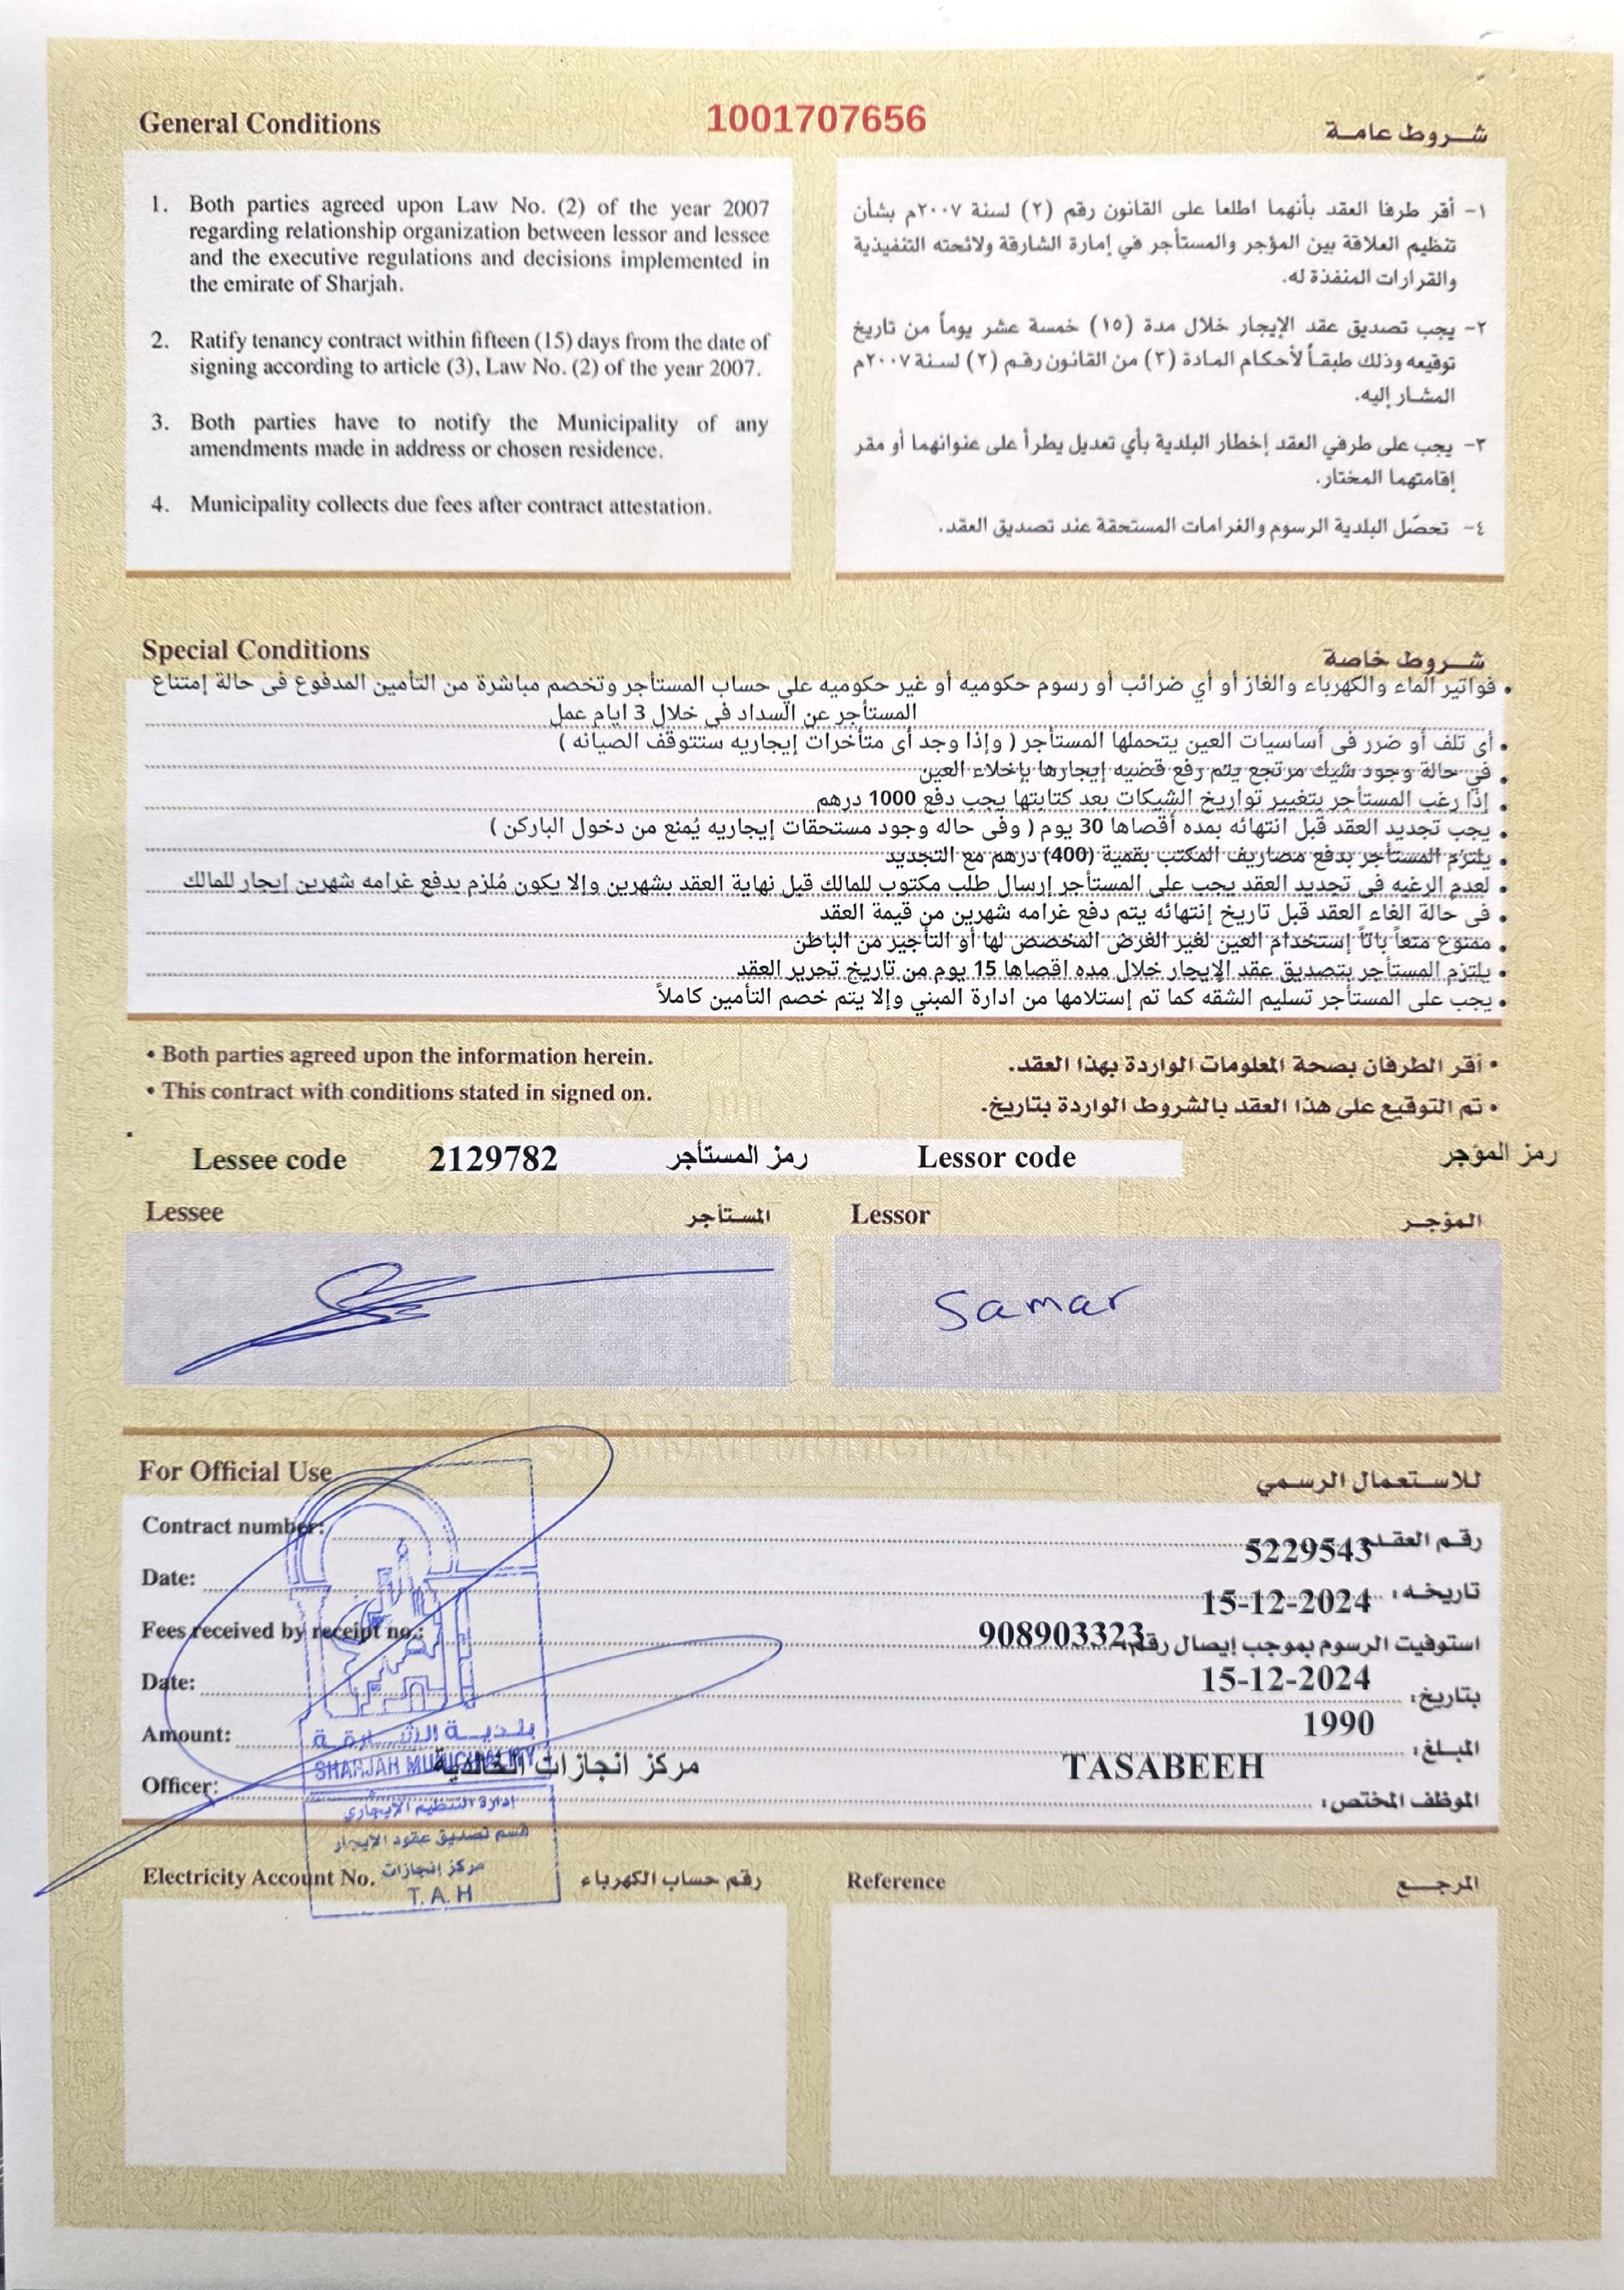 General Conditions
1001707656
شروط عامة
1. Both parties agreed upon Law No. (2) of the year 2007
regarding relationship organization between lessor and lessee
and the executive regulations and decisions implemented in
the emirate of Sharjah.
2. Ratify tenancy contract within fifteen (15) days from the date of
signing according to article (3), Law No. (2) of the year 2007.
3. Both parties have to notify the Municipality of any
amendments made in address or chosen residence.
4. Municipality collects due fees after contract attestation.
١- أقر طرفا العقد بأنهما اطلعا على القانون رقم (٢) لسنة ٢٠٠٧م بشأن
تنظيم العلاقة بين المؤجر والمستأجر في إمارة الشارقة ولائحته التنفيذية
والقرارات المنفذة له.
٢- يجب تصديق عقد الإيجار خلال مدة (١٥) خمسة عشر يوماً من تاريخ
توقيعه وذلك طبقاً لأحكام المادة (٣) من القانون رقم (٢) لسنة ٢٠٠٧م
المشار إليه.
٣- يجب على طرفي العقد إخطار البلدية بأي تعديل يطرأ على عنوانهما أو مقر
إقامتهما المختار.
٤- تحصّل البلدية الرسوم والغرامات المستحقة عند تصديق العقد.
Special Conditions
شروط خاصة
• فواتير الماء والكهرباء والغاز أو أي ضرائب أو رسوم حكوميه أو غير حكوميه علي حساب المستأجر وتخصم مباشرة من التأمين المدفوع فى حالة إمتناع
المستأجر عن السداد فى خلال 3 ايام عمل
• أى تلف أو ضرر فى أساسيات العين يتحملها المستأجر ( وإذا وجد أى متأخرات إيجاريه ستتوقف الصيانه )
• في حالة وجود شيك مرتجع يتم رفع قضيه إيجارها بإخلاء العين
• إذا رغب المستأجر بتغيير تواريخ الشيكات بعد كتابتها يجب دفع 1000 درهم
• يجب تجديد العقد قبل انتهائه بمده أقصاها 30 يوم ( وفى حاله وجود مستحقات إيجاريه يُمنع من دخول الباركن )
• يلتزم المستأجر بدفع مصاريف المكتب بقمية (400) درهم مع التجديد
• لعدم الرغبه فى تجديد العقد يجب على المستأجر إرسال طلب مكتوب للمالك قبل نهاية العقد بشهرين وإلا يكون مُلزم بدفع غرامه شهرين إيجار للمالك
• فى حالة الغاء العقد قبل تاريخ إنتهائه يتم دفع غرامه شهرين من قيمة العقد
• ممنوع متعاً باتاً إستخدام العين لغير الغرض المخصص لها أو التأجير من الباطن
• يلتزم المستأجر بتصديق عقد الإيجار خلال مده اقصاها 15 يوم من تاريخ تحرير العقد
• يجب على المستأجر تسليم الشقه كما تم إستلامها من ادارة المبني وإلا يتم خصم التأمين كاملاً
• Both parties agreed upon the information herein.
• This contract with conditions stated in signed on.
• أقر الطرفان بصحة المعلومات الواردة بهذا العقد.
• تم التوقيع على هذا العقد بالشروط الواردة بتاريخ.
Lessee code 2129782 رمز المستأجر Lessor code رمز المؤجر
Lessee المستأجر Lessor المؤجر
Samar
For Official Use
للاستعمال الرسمي
Contract number: 5229543 رقم العقد
Date: 15-12-2024 تاريخه:
Fees received by receipt no.: 908903323 استوفيت الرسوم بموجب إيصال رقم:
Date: 15-12-2024 بتاريخ:
Amount: 1990 المبلغ:
Officer: مركز انجازات الخالدية TASABEEH الموظف المختص:
بلدية الشارقة
SHARJAH MUNICIPALITY
إدارة التنظيم الإيجاري
قسم تصديق عقود الايجار
مركز إنجازات
T.A.H
Electricity Account No. رقم حساب الكهرباء Reference المرجع